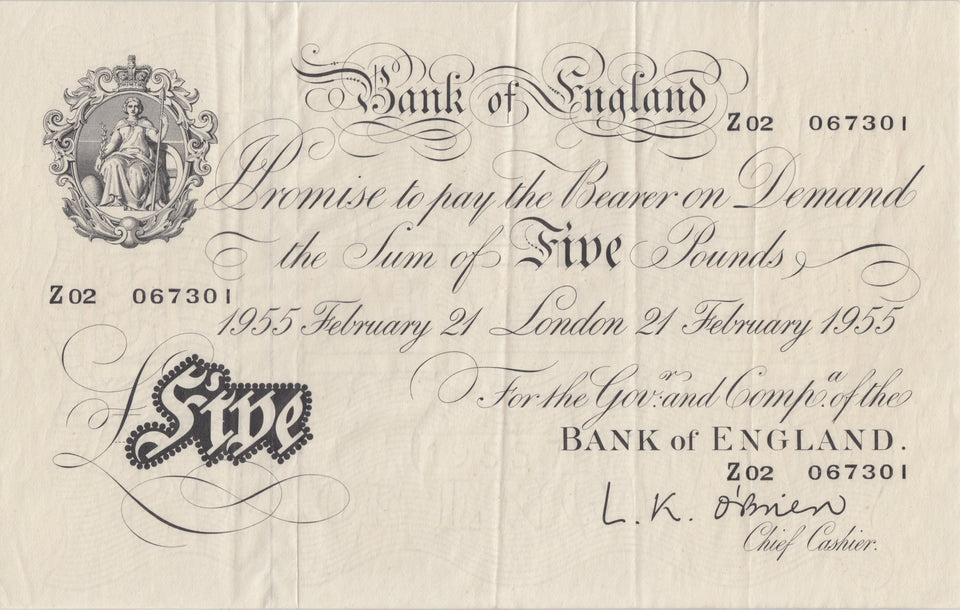 Bank of England
Z02 067301
I Promise to pay the Bearer on Demand
the Sum of Five Pounds
Z02 067301
1955 February 21 London 21 February 1955
For the Gov.r and Comp.a of the
£Five
BANK of ENGLAND.
Z02 067301
L. K. O'Brien
Chief Cashier.